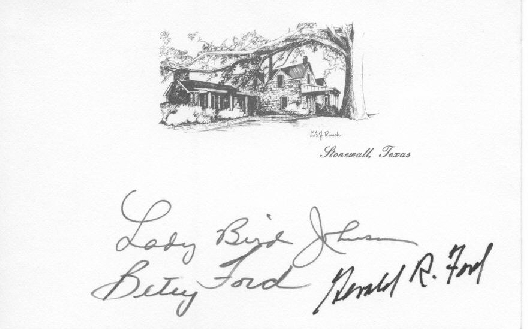 LBJ Ranch
Stonewall, Texas
Lady Bird Johnson
Betty Ford Gerald R. Ford